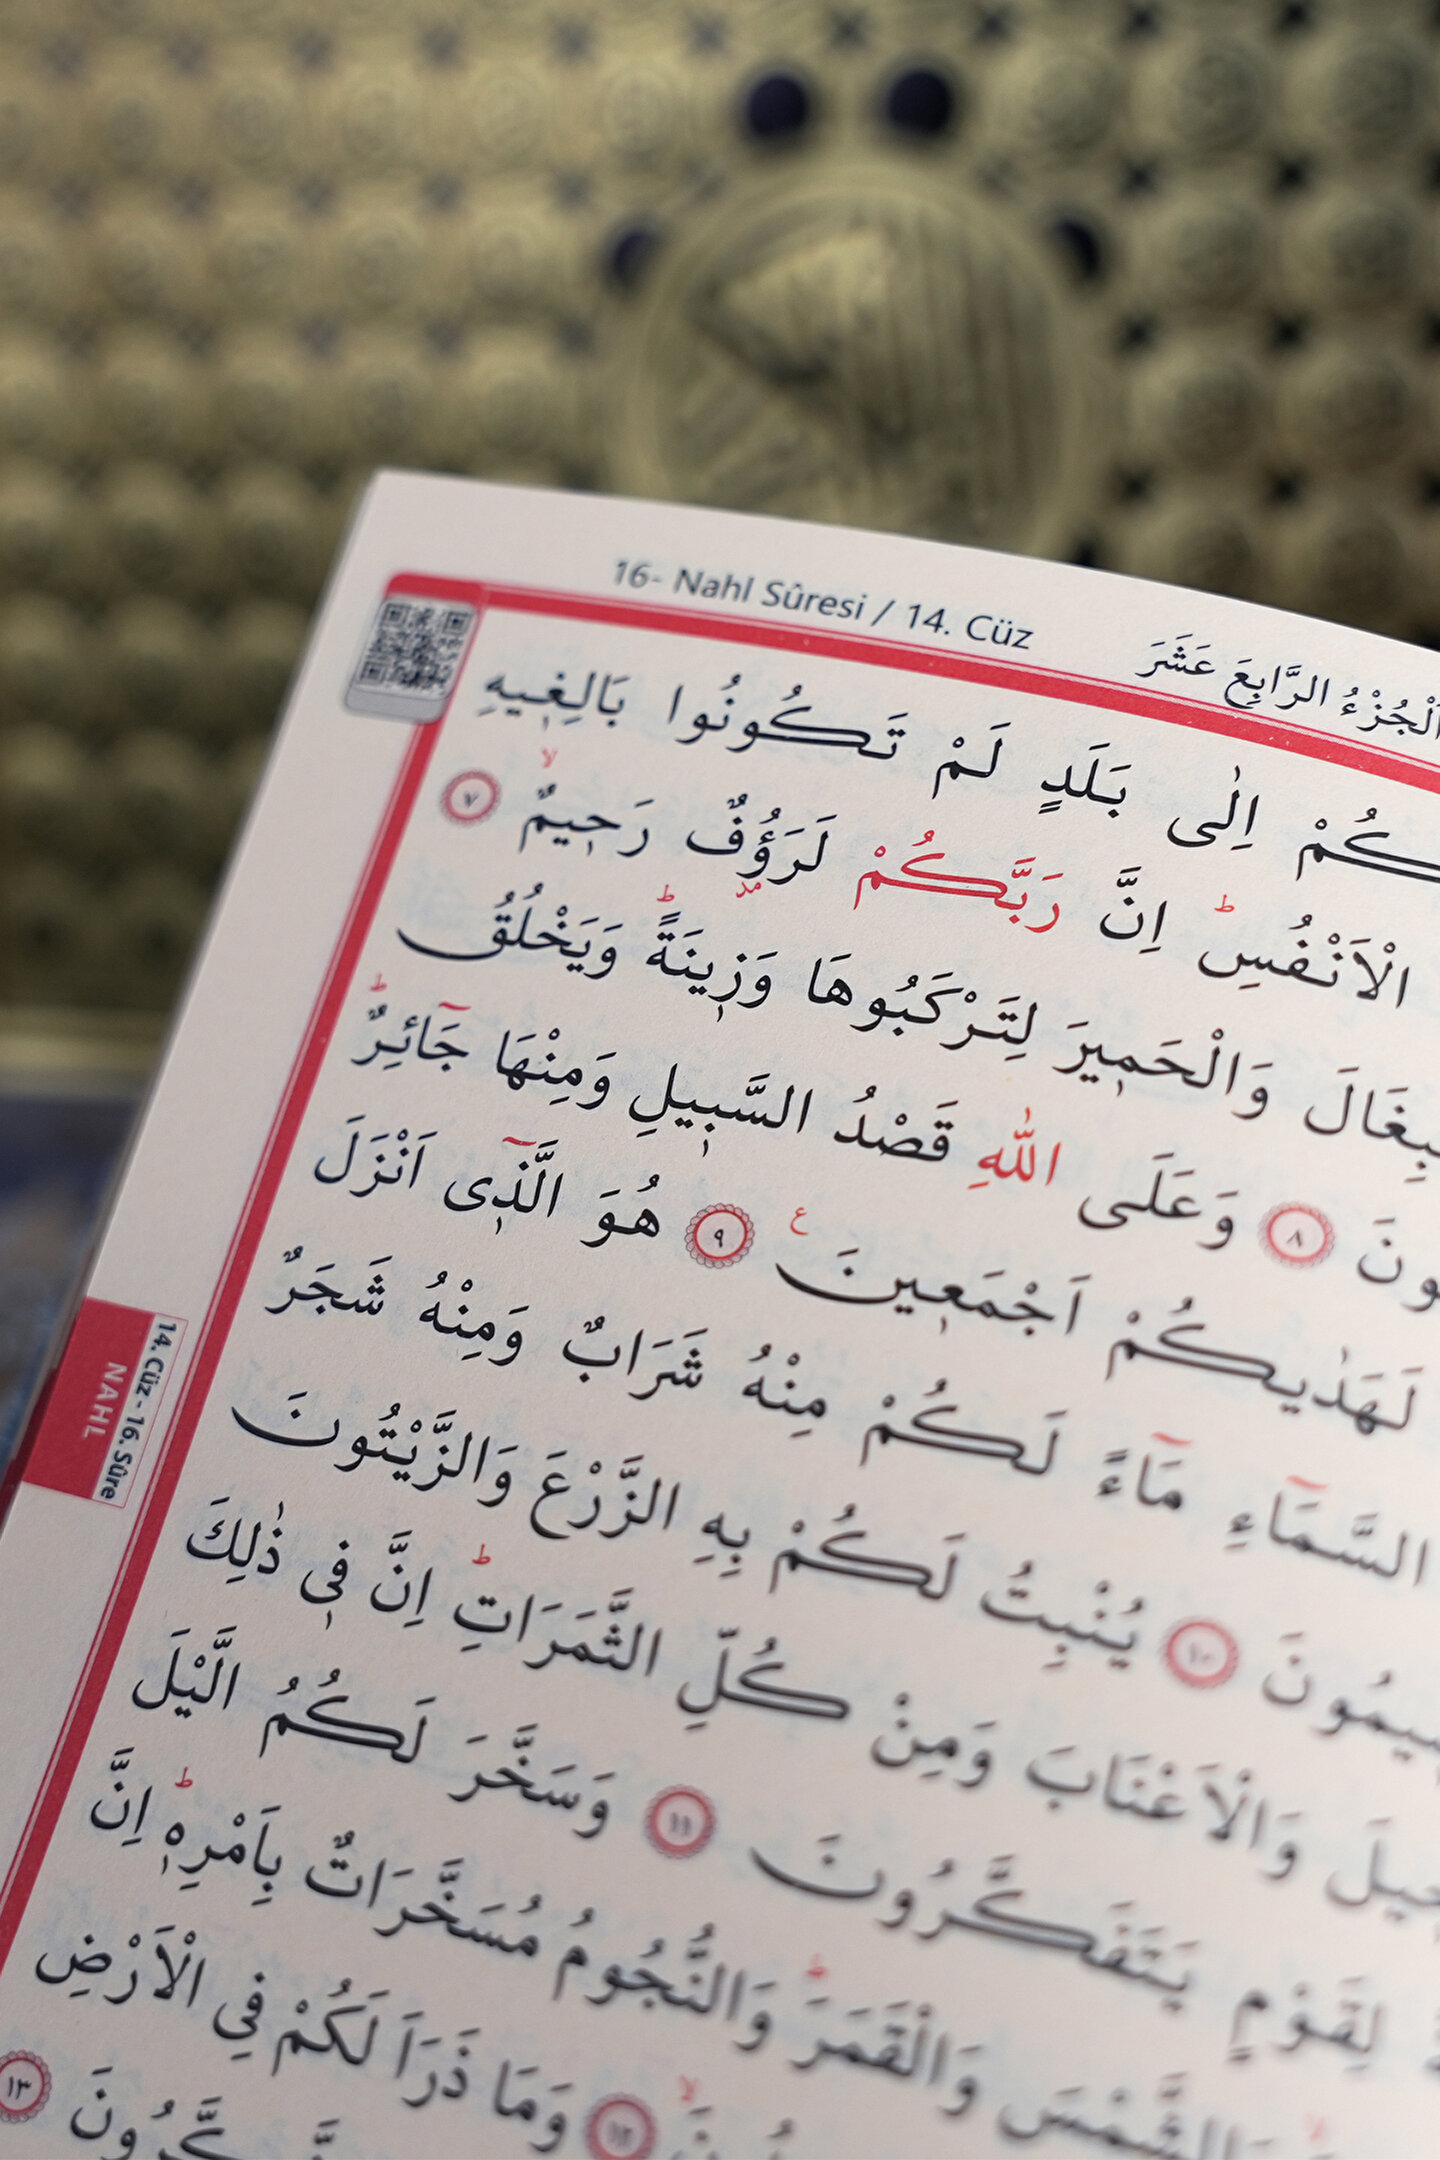 16- Nahl Sûresi / 14. Cüz
اَلْجُزْءُ الرَّابِعَ عَشَرَ
اِلٰى بَلَدٍ لَمْ تَكُونُوا بَالِغ۪يهِ
الْاَنْفُسِۜ اِنَّ رَبَّكُمْ لَرَؤُ۫فٌ رَح۪يمٌۙ ٧
وَالْحَم۪يرَ لِتَرْكَبُوهَا وَز۪ينَةًۜ وَيَخْلُقُ
٨ وَعَلَى اللّٰهِ قَصْدُ السَّب۪يلِ وَمِنْهَا جَٓائِرٌۜ
لَهَدٰيكُمْ اَجْمَع۪ينَ۟ ٩ هُوَ الَّذ۪ٓي اَنْزَلَ
السَّمَٓاءِ مَٓاءً لَكُمْ مِنْهُ شَرَابٌ وَمِنْهُ شَجَرٌ
١٠ يُنْبِتُ لَكُمْ بِهِ الزَّرْعَ وَالزَّيْتُونَ
وَالْاَعْنَابَ وَمِنْ كُلِّ الثَّمَرَاتِۜ اِنَّ ف۪ي ذٰلِكَ
لِقَوْمٍ يَتَفَكَّرُونَ ١١ وَسَخَّرَ لَكُمُ الَّيْلَ
وَالشَّمْسَ وَالْقَمَرَۜ وَالنُّجُومُ مُسَخَّرَاتٌ بِاَمْرِه۪ۜ اِنَّ
١٢ وَمَا ذَرَاَ لَكُمْ فِي الْاَرْضِ
١٣
14. Cüz - 16. Sûre
NAHL